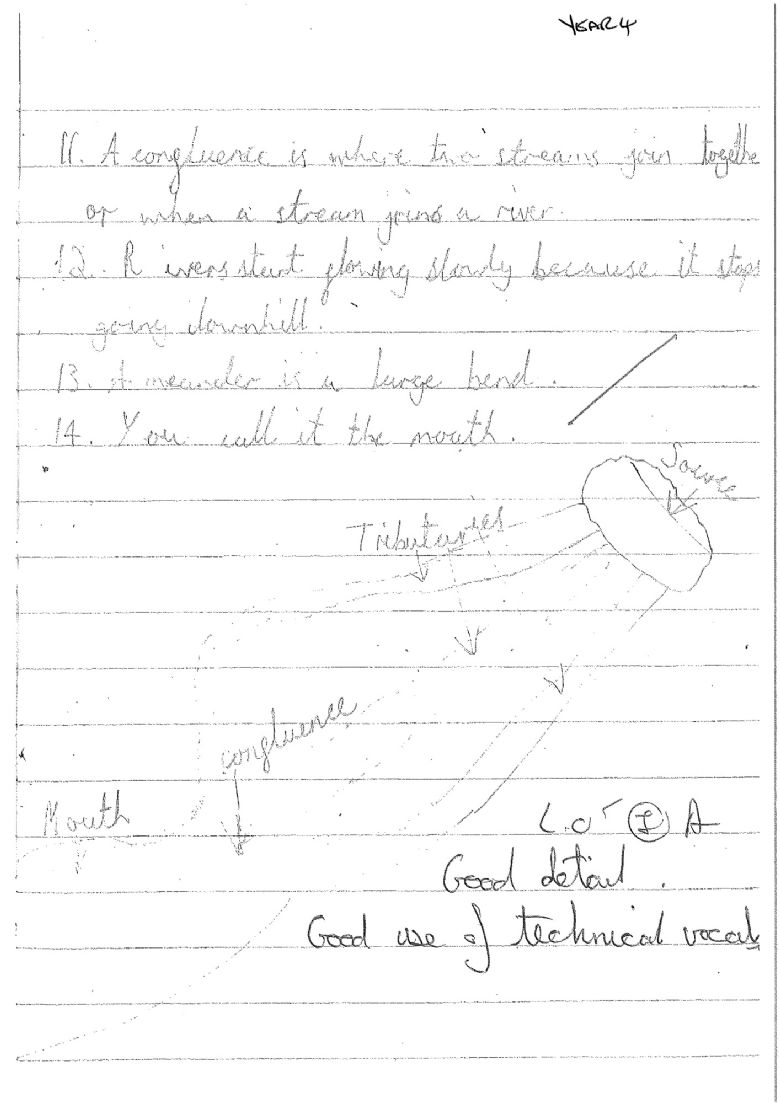 YEAR 4
11. A confluence is where two streams join togethe
or when a stream joins a river.
12. Rivers start flowing slowly because it stops
going downhill.
13. A meander is a large bend.
14. You call it the mouth.
Source
Tributaries
confluence
Mouth
L.O I A
Good detail.
Good use of technical vocab